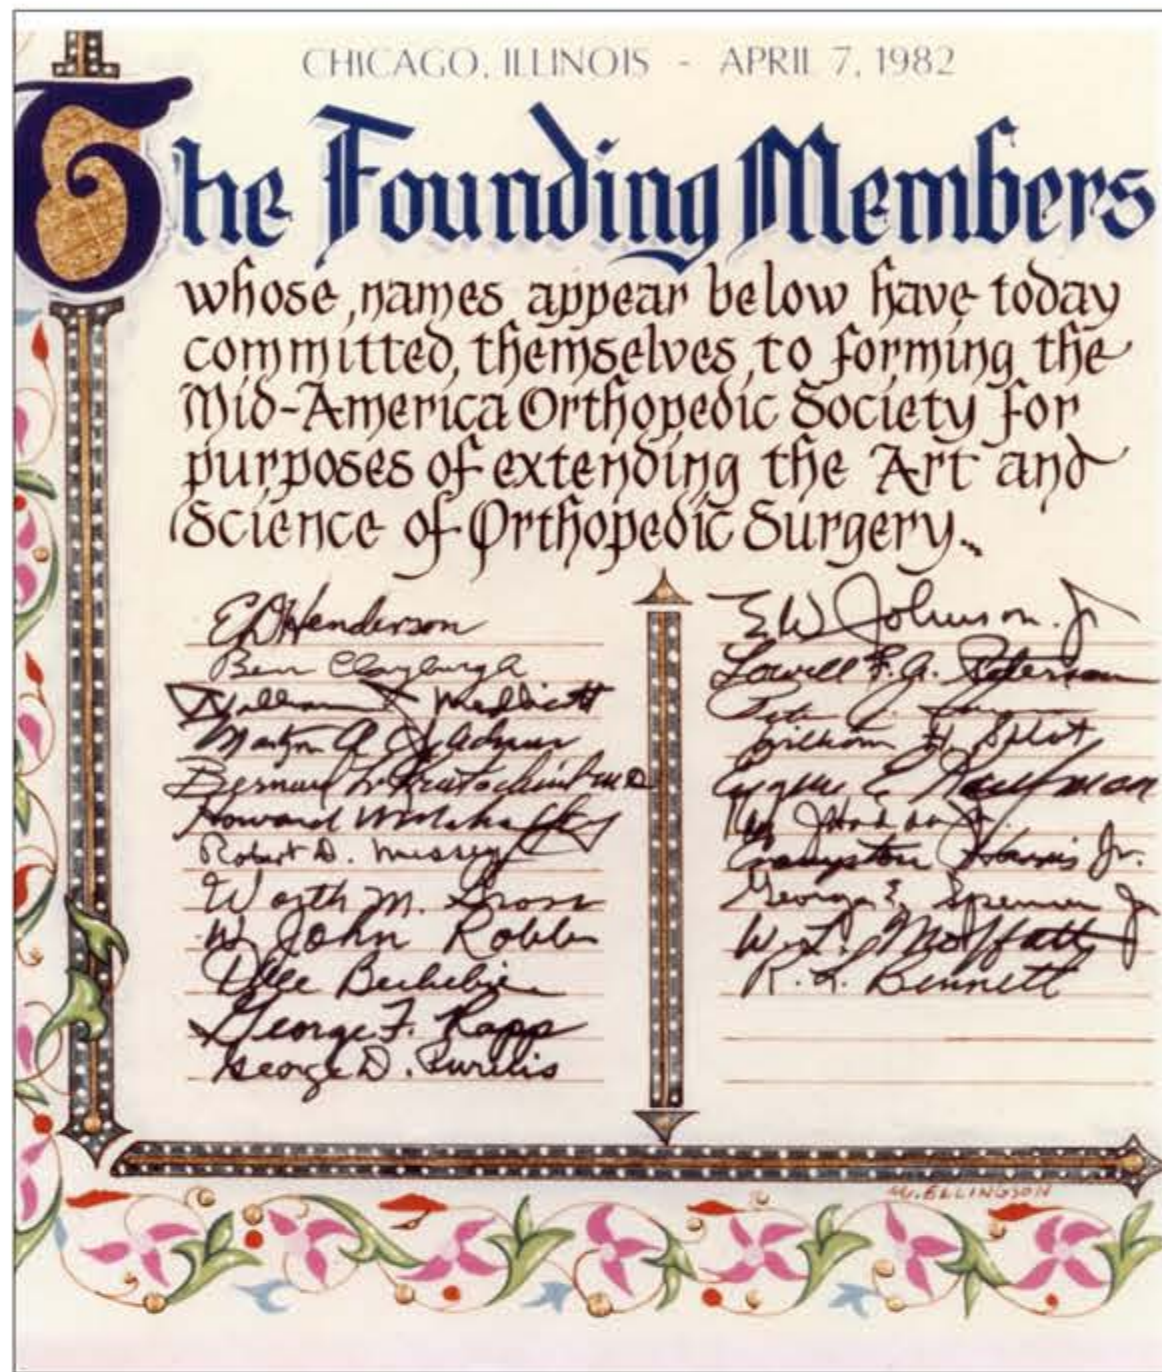 CHICAGO, ILLINOIS - APRIL 7, 1982
The Founding Members
whose names appear below have today
committed themselves to forming the
Mid-America Orthopedic Society for
purposes of extending the Art and
Science of Orthopedic Surgery.
E D Henderson
Ben Clayburgh
William
Bernard L.
Howard
Robert D. Massey
Worth M. Gross
W. John
George F. Rapp
George D.
E W Johnson. Jr
Lowell F. A. Peterson
William H.
Eugene E. Kauffman
Harris Jr.
George E. Spencer Jr
W. L. Moffatt
R. L. Bennett
W. ELLINGSON